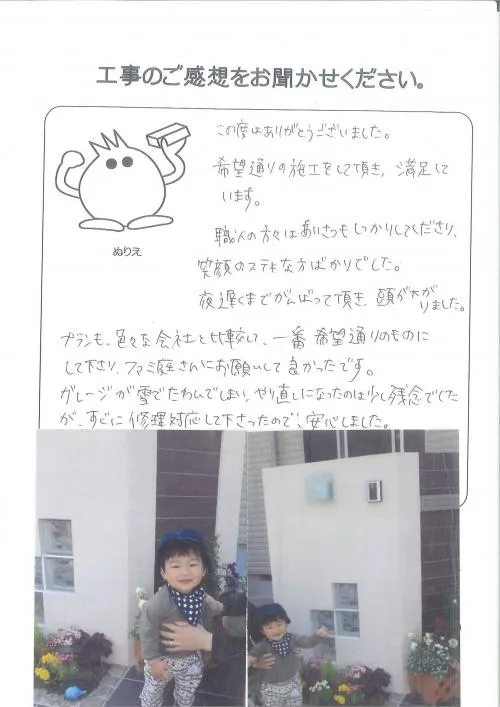 工事のご感想をお聞かせください。
ぬりえ
この度はありがとうございました。
希望通りの施工をして頂き、満足して
います。
職人の方々はあいさつもしっかりしてくださり、
笑顔のステキな方ばかりでした。
夜遅くまでがんばって頂き、頭が下がりました。
プランも、色々な会社と比較して、一番希望通りのものに
して下さり、ファミ庭さんにお願いして良かったです。
ガレージが雪でたわんでしまい、やり直しになったのは少し残念でした
が、すぐに修理対応して下さったので、安心しました。